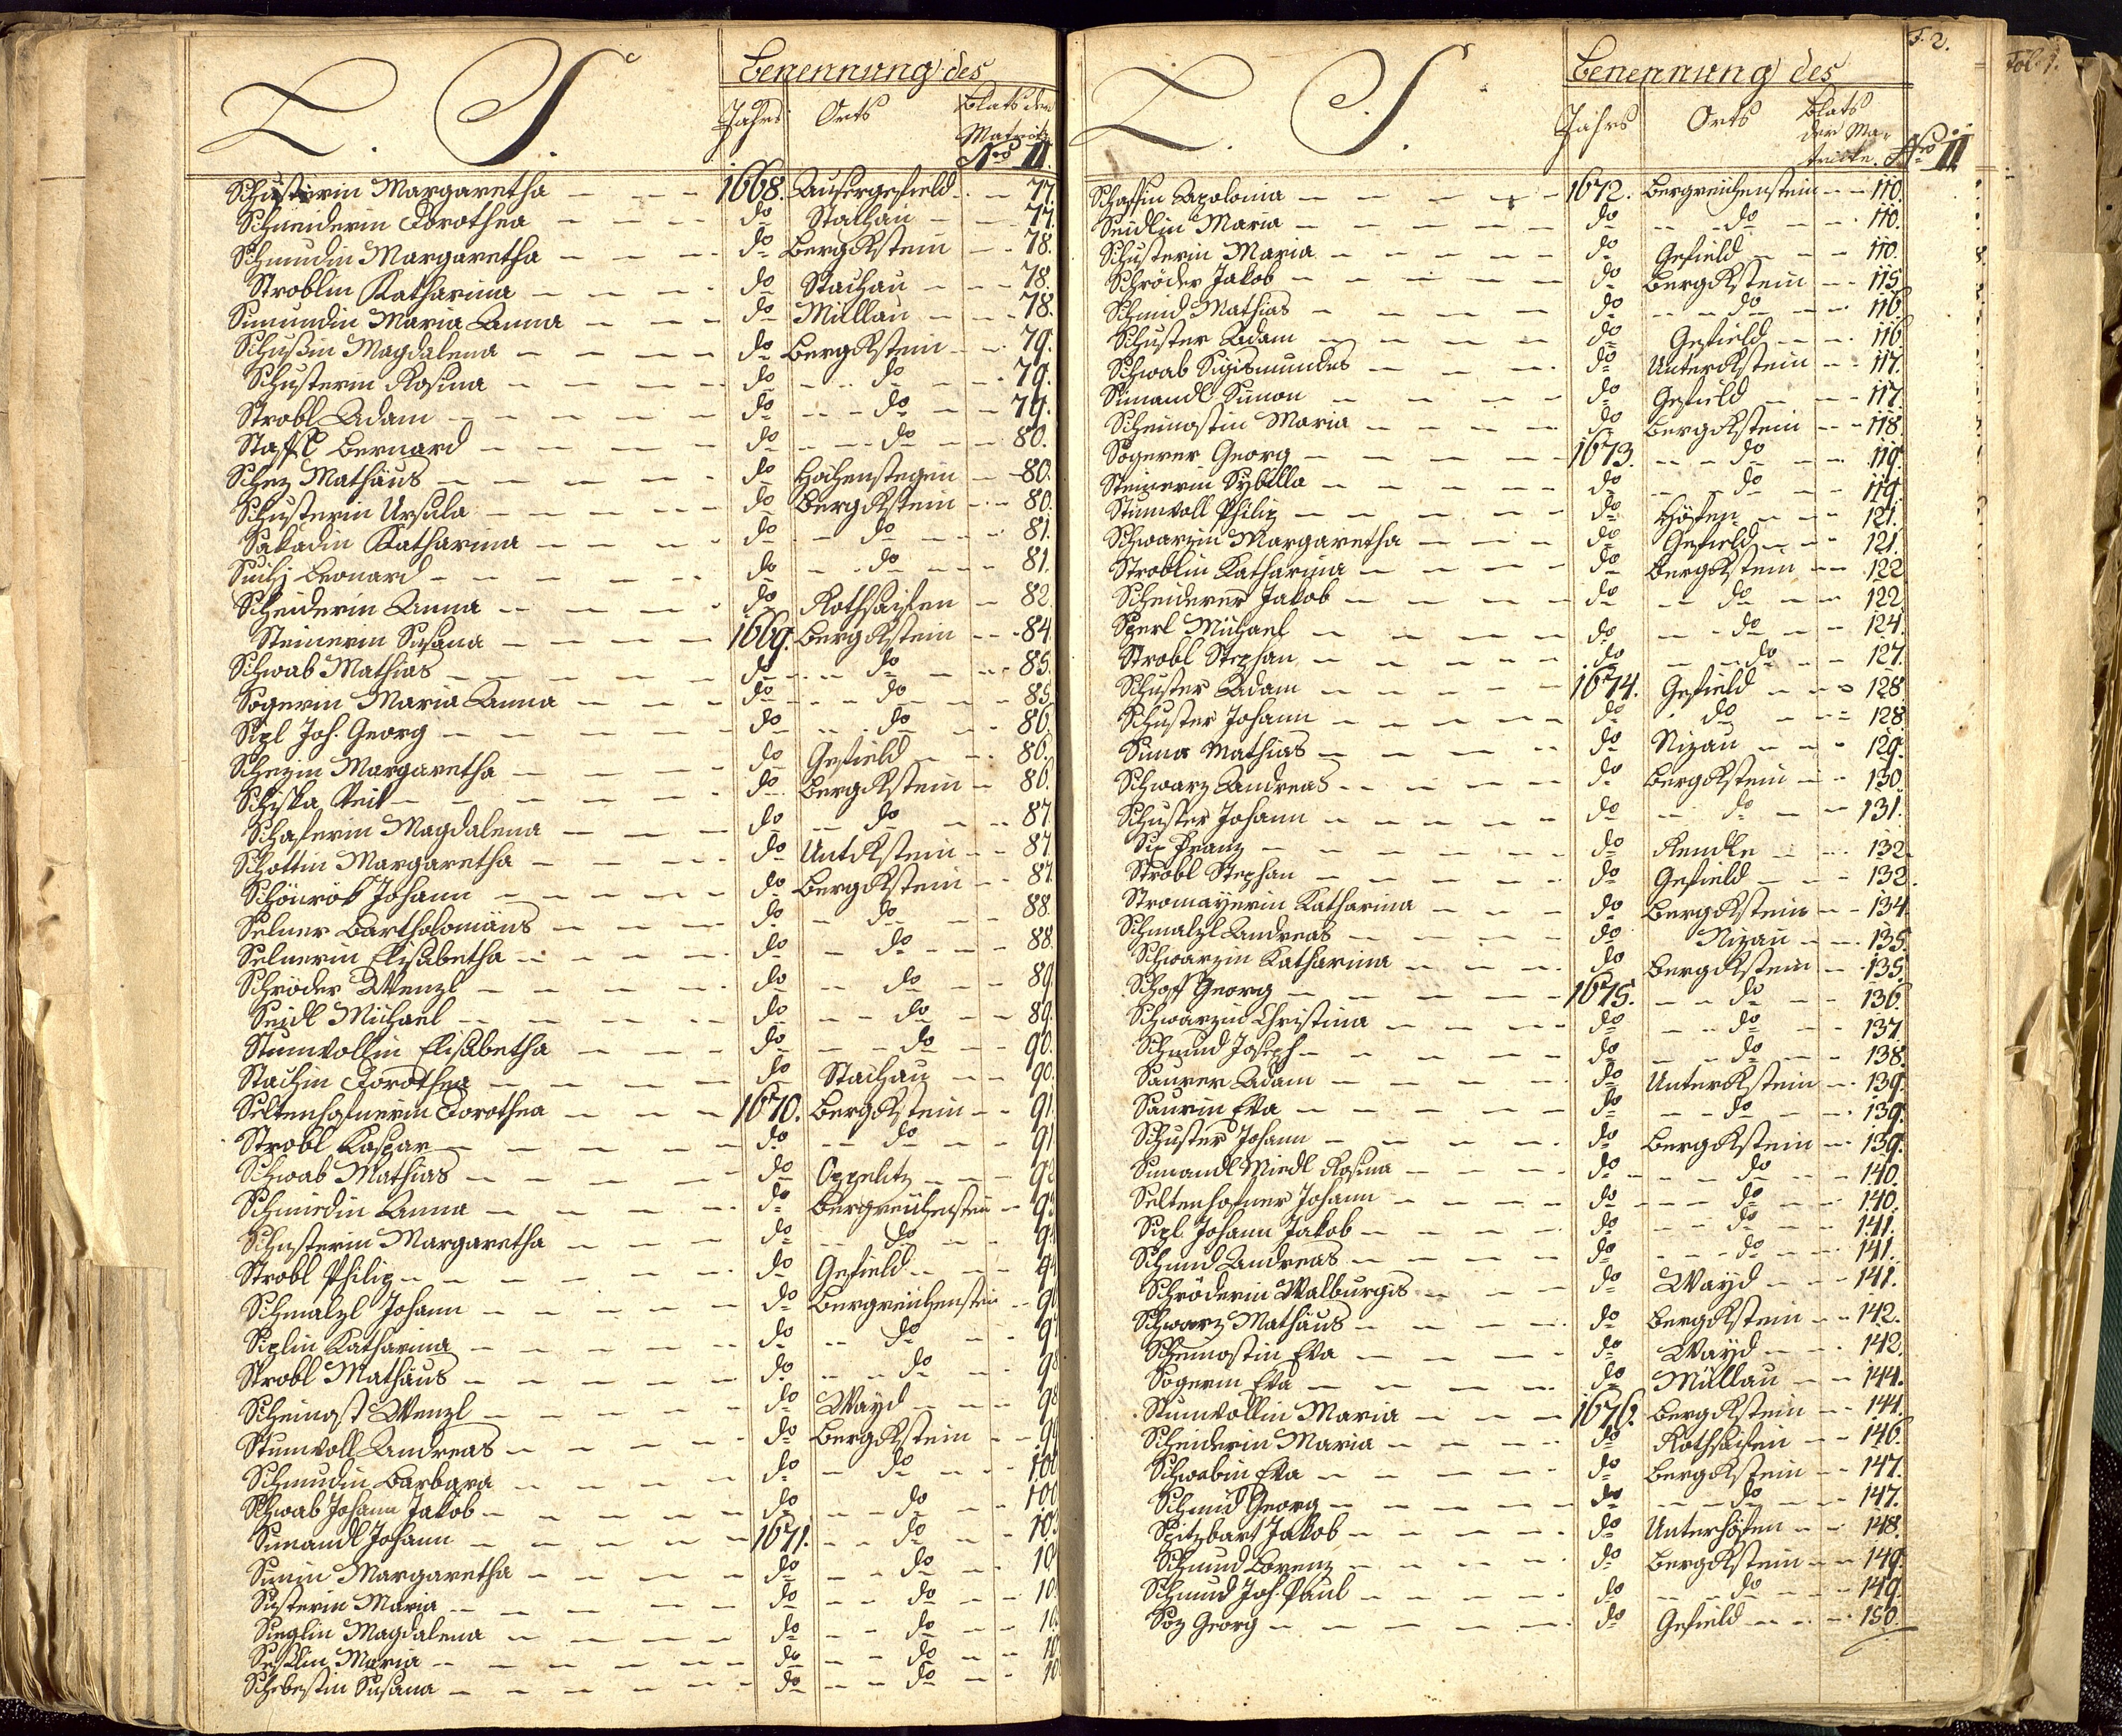 L. S.
Benennung des
Jahrs Orts Blats der Matrick Nro II.
Schusterin Margaretha 1668. Ausergefield 77.
Schneiderin Dorothea do Stachau 77.
Schmudin Margaretha do Bergckstein 78.
Stroblin Katharina do Stachau 78.
Simundin Maria Anna do Millau 78.
Schußin Magdalena do Bergckstein 79.
Schusterin Rosina do do 79.
Strobl Adam do do 79.
Staffl Bernard do do 80.
Schez Mathäus do Hohenstegen 80.
Schusterin Ursula do Bergckstein 80.
Katharina do do 81.
Leonard do do 81.
Scheiderin Anna do Rothsaifen 82.
Steinerin Susana 1669. Bergckstein 84.
Schwab Mathias do do 85.
Sogerin Maria Anna do do 85.
Sipl Joh. Georg do do 86.
Schezin Margaretha do Gefield 86.
Schiska Veit do Bergckstein 86.
Schaferin Magdalena do do 87.
Schottin Margaretha do Untckstein 87.
Schönrok Johann do Bergckstein 87.
Selner Bartholomäus do do 88.
Selnerin Elisabetha do do 88.
Schröder Wenzl do do 89.
Seidl Michael do do 89.
Stumvollin Elisabetha do do 90.
Stachin Dorothea do Stachau 90.
Seltenhofnerin Dorothea 1670. Bergckstein 91.
Strobl Kaspar do do 91.
Schwab Mathias do Oppelitz 92
Schmiedin Anna do Bergreichenstein 93
Schusterin Margaretha do do 94
Strobl Philip do Gefield 94
Schmalzl Johann do Bergreichenstein 96
Siplin Katharina do do 97
Strobl Mathäus do do 98
Scheinost Wenzl do Wayd 98
Stumvoll Andreas do Bergckstein 99
Schmudin Barbara do do 100
Schwab Johann Jakob do do 100
Simandl Johann 1671. do 10
Simin Margaretha do do 10
Susterin Maria do do 10
Sieglin Magdalena do do 10
Maria do do 10
Schebestin Susana do do 10
F. 2.
Fol. 1.
L. S.
Benennung des
Jahrs Orts Blats der Matricke. Nro II
Schaffin Apolonia 1672. Bergreichenstein 110.
Seidlin Maria do do 110.
Schusterin Maria do Gefield 110.
Schröder Jakob do Bergckstein 115.
Schmid Mathias do do 116.
Schuster Adam do Gefield 116.
Schwab Sigismundus do Unterckstein 117.
Simandl Simon do Gefield 117.
Scheinostin Maria do Bergckstein 118.
Sogerer Georg 1673. do 119.
Steinerin Sybilla do do 119.
Stumvoll Philip do Höfen 121.
Schwarzin Margaretha do Gefield 121.
Stroblin Katharina do Bergckstein 122
Scheiderer Jakob do do 122
Sperl Michael do do 124.
Strobl Stephan do do 127.
Schuster Adam 1674. Gefield 128
Schuster Johann do do 128
Mathias do Nizau 129.
Schwarz Andreas do Bergckstein 130.
Schuster Johann do do 131.
Franz do Rendle 132.
Strobl Stephan do Gefield 132.
Stromayerin Katharina do Bergckstein 134.
Schmalzl Andreas do Nizau 135.
Schwarzin Katharina do Bergckstein 135.
Schaff Georg 1675. do 136.
Schwarzin Christina do do 137.
Schmid Joseph do do 138.
Saurer Adam do Unterckstein 139.
Saurin Eva do do 139.
Schuster Johann do Bergckstein 139.
Simandl Miedl Rosina do do 140.
Seltenhofner Johann do do 140.
Sipl Johann Jakob do do 141.
Schmid Andreas do do 141.
Schröderin Walburgis do Wayd 141.
Schwarz Mathäus do Bergckstein 142.
Scheinostin Eva do Wayd 142.
Sogerin Eva do Müllau 144.
Stumvollin Maria 1676. Bergckstein 144.
Scheiderin Maria do Rothsaifen 146.
Schwabin Eva do Bergckstein 147.
Schmid Georg do do 147.
Spitzbart Jakob do Unterhöfen 148.
Schmid Lorenz do Bergckstein 149.
Schmid Joh. Paul do do 149.
Soz Georg do Gefield 150.